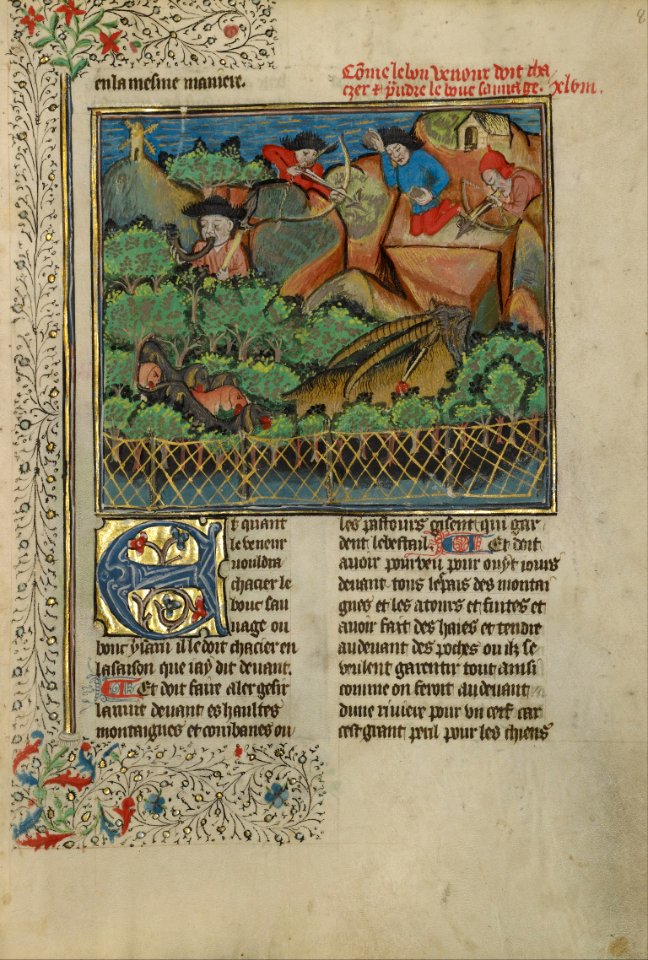 en la mesme maniere.
Cõme le bon veneur doit cha
cier et p̃ndre le bouc sauuage. xlviii.
Et quant
le veneur
vouldra
chacier le
bouc sau
uage ou
bouc ysain il le doit chacier en
la saison que iay dit deuant.
Et doit faire aler gesir
la nuit deuant es haultes
montaignes et combanes ou
les pastours gisent qui gar
dent le bestail. Et doit
auoir pourveu pour ouyt iours
deuant tous le pais des montai
gnes et les atours et fuites et
auoir fait des haies et tendre
au deuant des poches ou ilz se
veulent garentir tout ainsi
comme on feroit au deuant
dune riuiere pour vn cerf car
cest grant peril pour les chiens